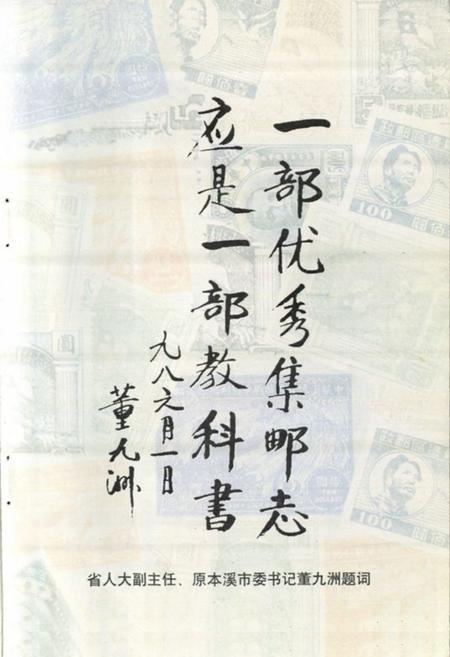 一部优秀集邮志
应是一部教科書
九八六月一日
董九洲
省人大副主任、原本溪市委书记董九洲题词
100
100